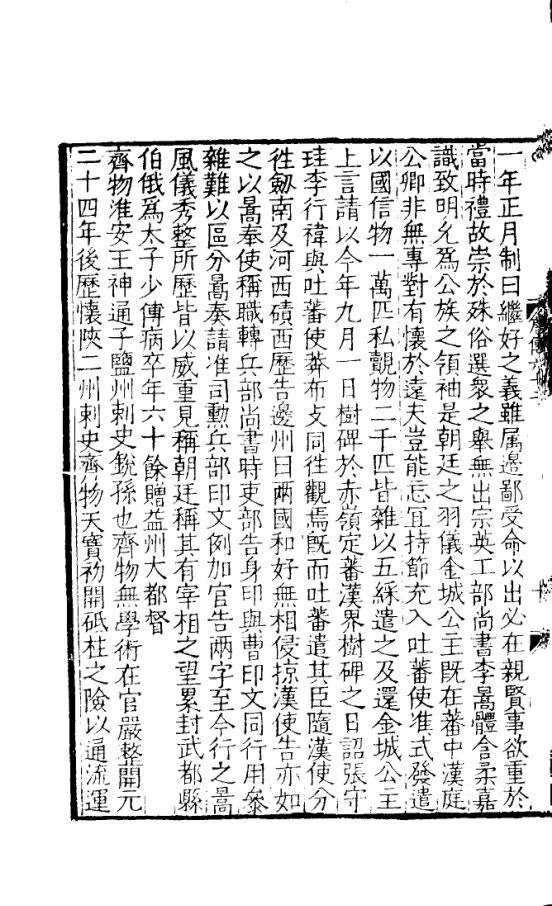 一年正月制曰繼好之義雖属邊鄙受命以出必在親賢事欲重於
當時禮故崇於殊俗選衆之舉無出宗英工部尚書李暠體含柔嘉
識致明允爲公族之領袖是朝廷之羽儀金城公主旣在蕃中漢庭
公卿非無專對有懷於遠夫豈能忘冝持節充入吐蕃使准式發遣
以國信物一萬匹私覿物二千匹皆雜以五綵遣之及還金城公主
上言請以今年九月一日樹碑於赤嶺定蕃漢界樹碑之日詔張守
珪李行禕與吐蕃使莽布攴同徃觀焉旣而吐蕃遣其臣隨漢使分
徃劒南及河西磧西歷告邊州曰兩國和好無相侵掠漢使告亦如
之以暠奉使稱職轉兵部尚書時吏部告身印與曹印文同行用叅
雜難以區分暠奏請准司勳兵部印文例加官告兩字至今行之暠
風儀秀整所歷皆以威重見稱朝廷稱其有宰相之望累封武都縣
伯俄爲太子少傅病卒年六十餘贈益州大都督
齊物淮安王神通子鹽州剌史銳孫也齊物無學術在官嚴整開元
二十四年後歷懷陝二州剌史齊物天寶初開砥柱之險以通流運